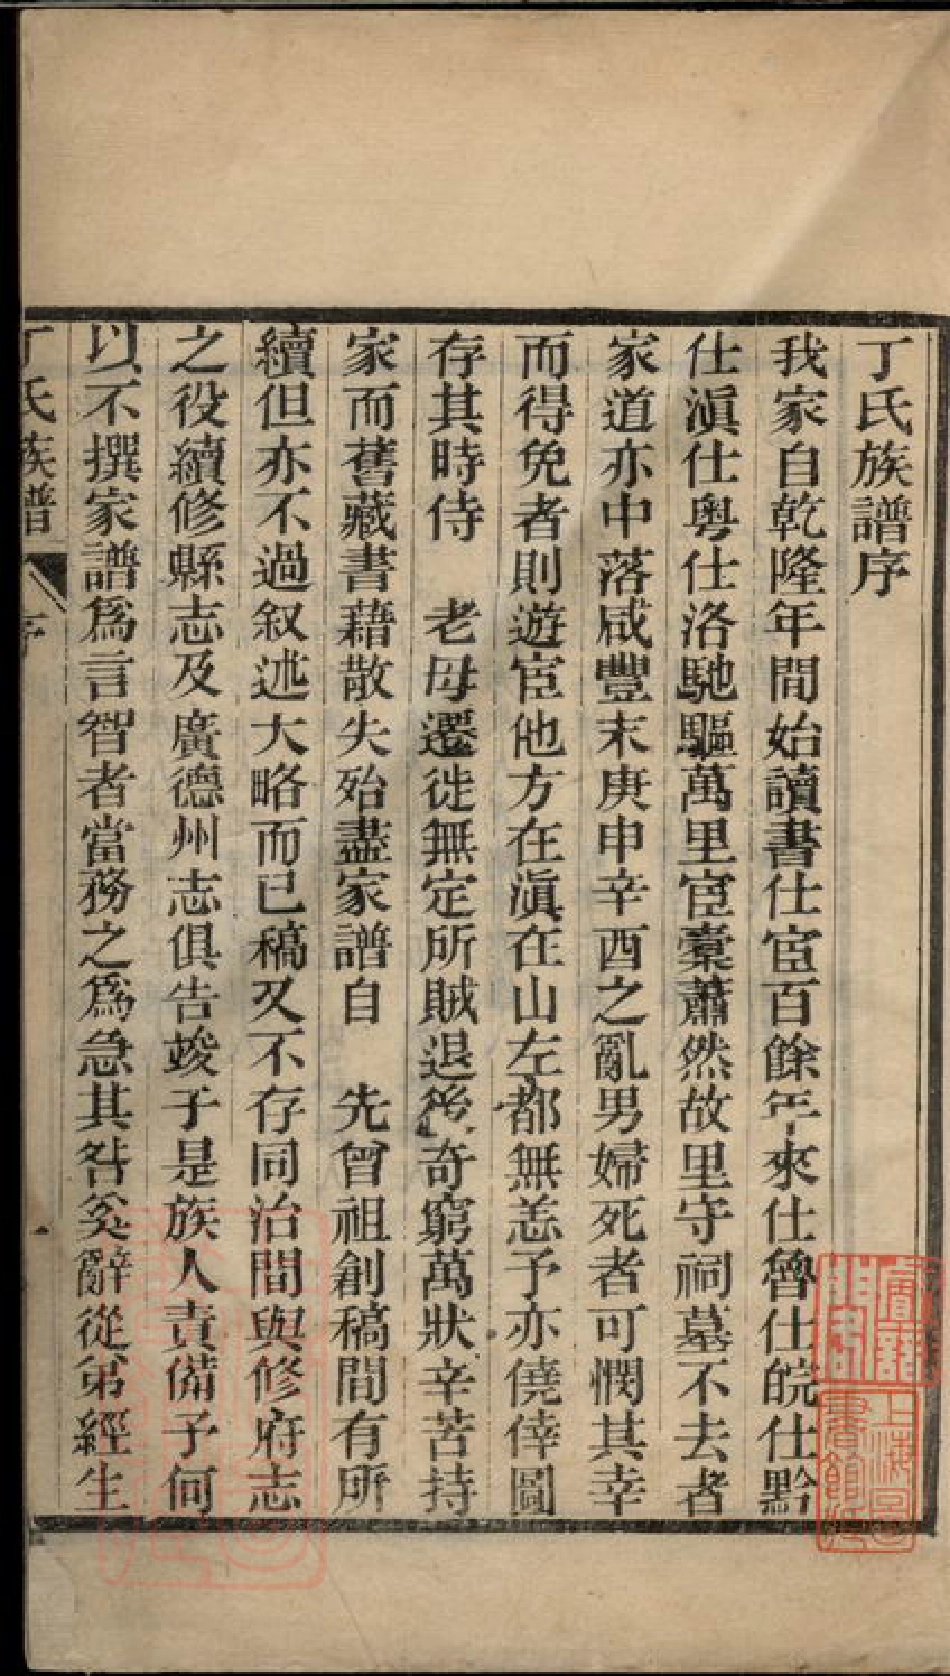 丁氏族譜序
我家自乾隆年間始讀書仕宦百餘年來仕魯仕皖仕黔
仕滇仕粵仕洛馳驅萬里宦橐蕭然故里守祠墓不去者
家道亦中落咸豐末庚申辛酉之亂男婦死者可憫其幸
而得免者則遊宦他方在滇在山左都無恙予亦僥倖圖
存其時侍　老母遷徙無定所賊退後奇窮萬狀辛苦持
家而舊藏書藉散失殆盡家譜自　先曾祖創稿間有所
續但亦不過叙述大略而已稿又不存同治間與修府志
之役續修縣志及廣德州志俱告竣于是族人責備予何
以不撰家譜爲言智者當務之爲急其咎奚辭從弟經生
丁氏族譜　序
上海圖書館藏